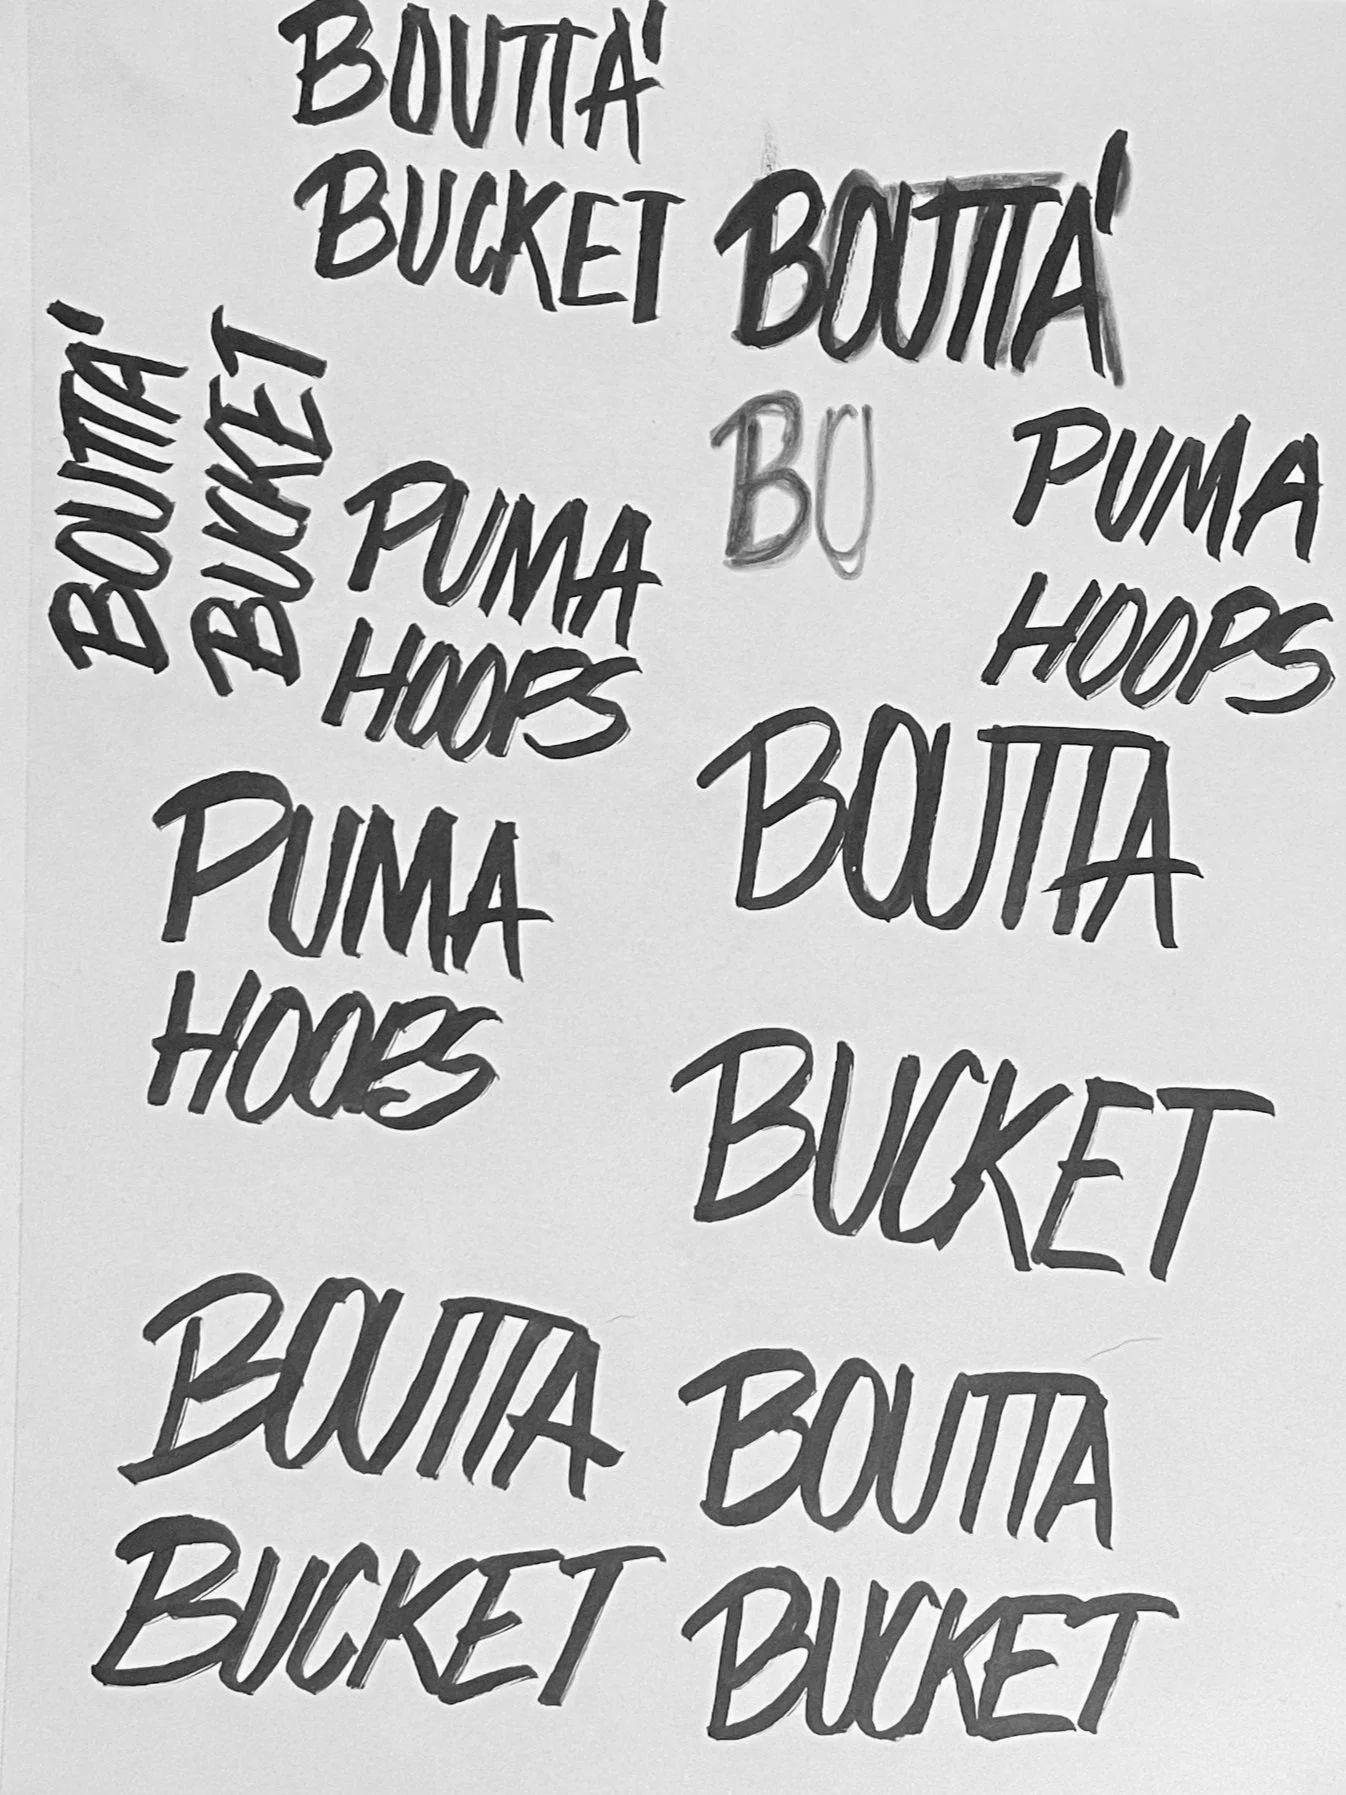 BOUTTA'
BUCKET
BOUTTA'
BO
BOUTTA'
BUCKET
PUMA
HOOPS
PUMA
HOOPS
PUMA
HOOPS
BOUTTA
BUCKET
BOUTTA
BUCKET
BOUTTA
BUCKET